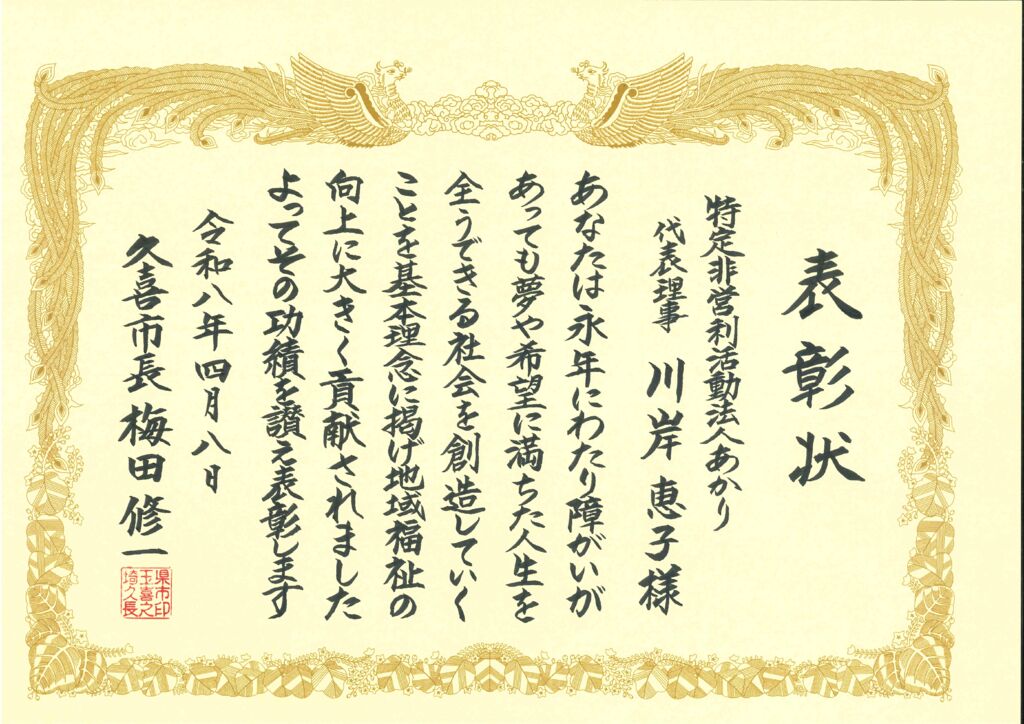 表彰状
特定非営利活動法人あかり
代表理事 川岸 恵子様
あなたは永年にわたり障がいが
あっても夢や希望に満ちた人生を
全うできる社会を創造していく
ことを基本理念に掲げ地域福祉の
向上に大きく貢献されました
よってその功績を讃え表彰します
令和八年四月八日
久喜市長 梅田修一
埼玉県
久喜市
長之印